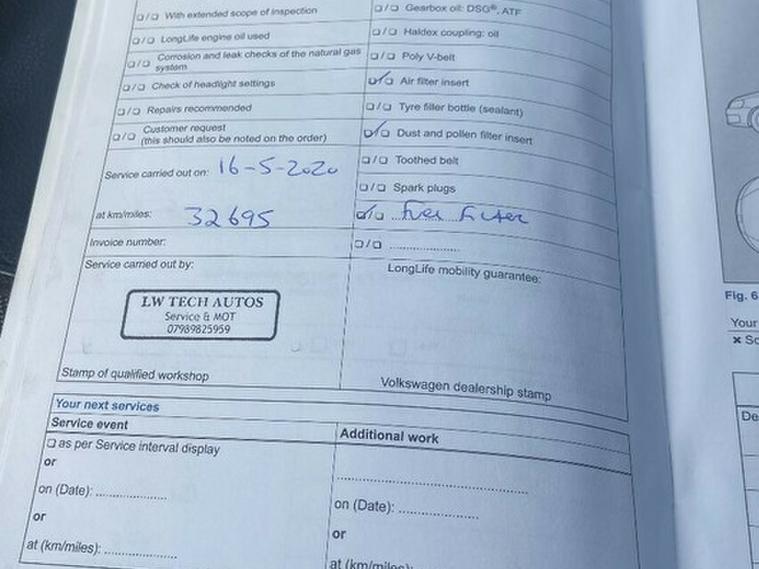 ❏/❏ With extended scope of inspection
❏/❏ LongLife engine oil used
❏/❏ Corrosion and leak checks of the natural gas system
❏/❏ Check of headlight settings
❏/❏ Repairs recommended
❏/❏ Customer request
(this should also be noted on the order)
Service carried out on: 16-5-2020
at km/miles: 32695
Invoice number:
Service carried out by:
LW TECH AUTOS
Service & MOT
07989825959
Stamp of qualified workshop
❏/❏ Gearbox oil: DSG®, ATF
❏/❏ Haldex coupling: oil
❏/❏ Poly V-belt
❏/❏ Air filter insert
❏/❏ Tyre filler bottle (sealant)
❏/❏ Dust and pollen filter insert
❏/❏ Toothed belt
❏/❏ Spark plugs
❏/❏ Fuel Filter
❏/❏ ....................
LongLife mobility guarantee:
Volkswagen dealership stamp
Your next services
Service event
❏ as per Service interval display
or
on (Date): ....................
or
at (km/miles): ....................
Additional work
..................................................
on (Date): ....................
or
at (km/miles):
Fig. 6
Your
× Sc
De